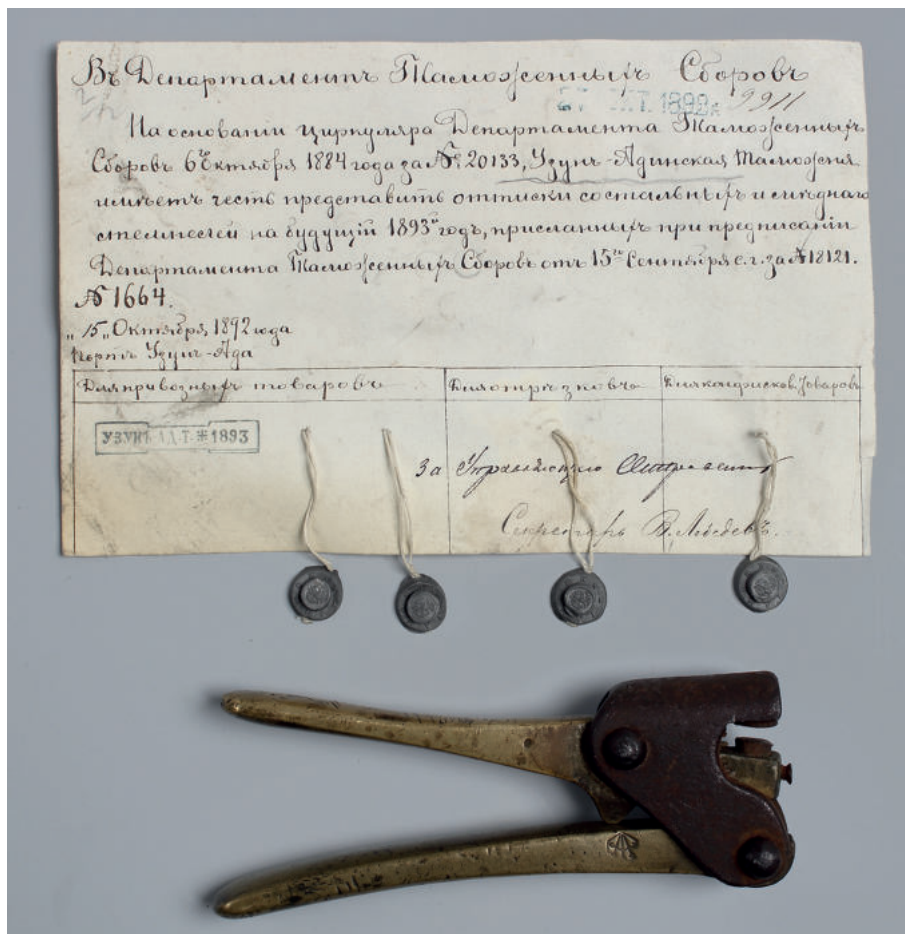 Въ Департаментъ Таможенныхъ Сборовъ
27 ОКТ. 1892 9911
На основаніи циркуляра Департамента Таможенныхъ
Сборовъ 6го Октября 1884 года за № 20133, Узунъ-Адинская Таможня
имѣетъ честь представить оттиски со стальныхъ и мѣднаго
штемпелей на будущій 1893й годъ, присланныхъ при предписаніи
Департамента Таможенныхъ Сборовъ отъ 15го Сентября с.г. за № 18121.
№ 1664.
„15„ Октября 1892 года
Портъ Узунъ-Ада
Для привозныхъ товаровъ
Для отрѣзковъ
Для конфисков. товаровъ
УЗУНЪ АД. Т. 1893
За Управляющаго
Секретарь В. Лебедевъ.